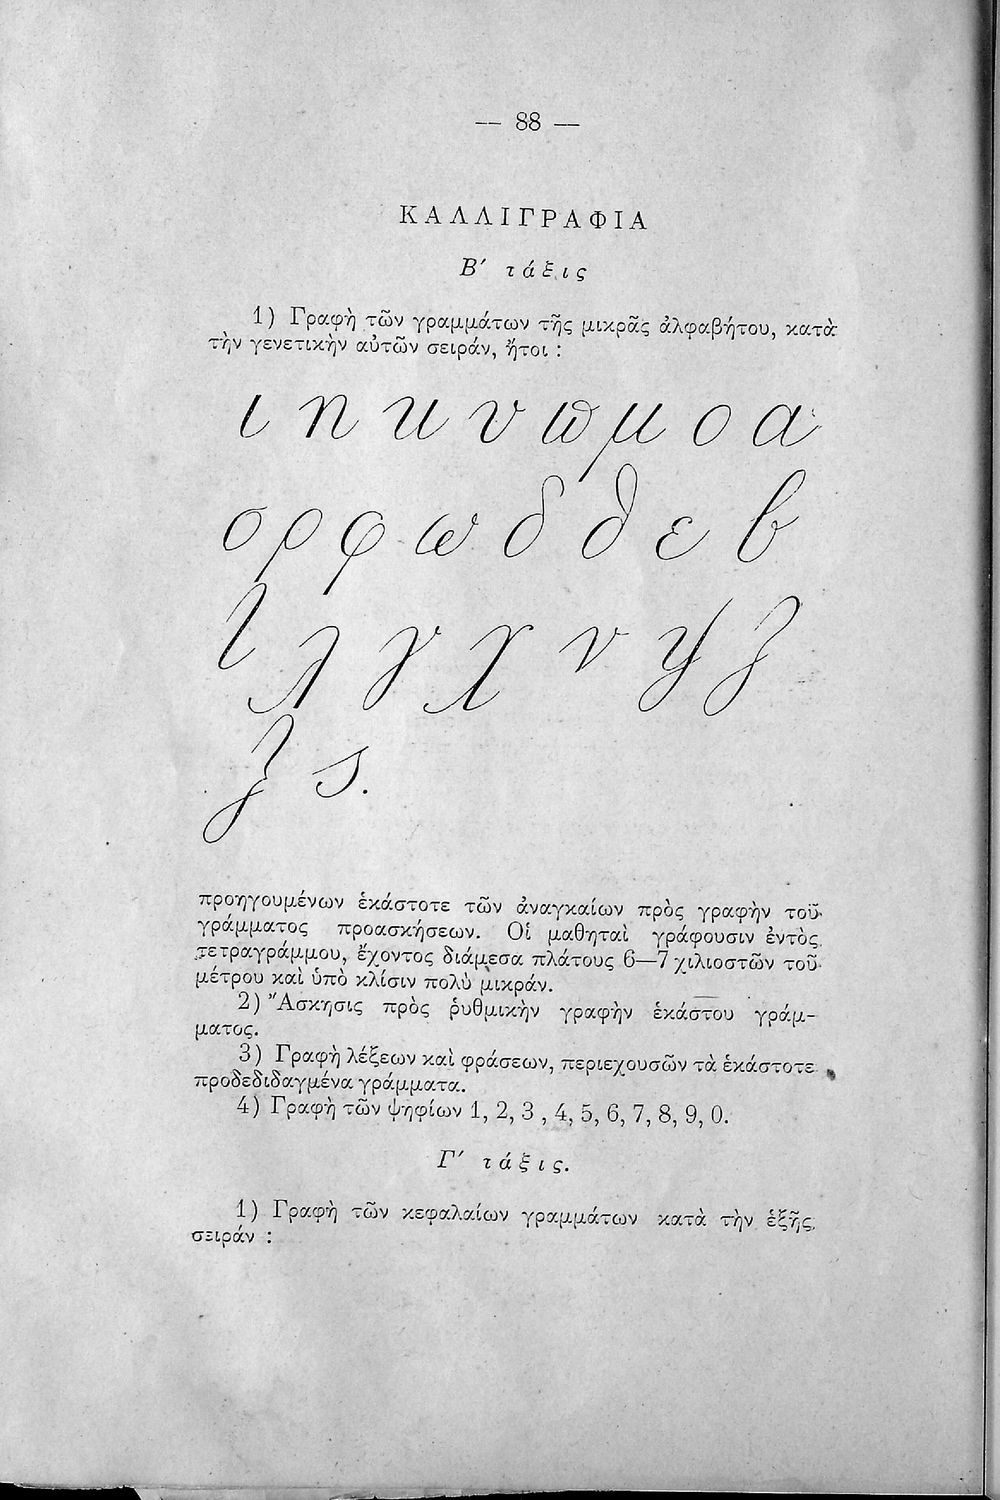 — 88 —
ΚΑΛΛΙΓΡΑΦΙΑ
Β′ τάξις
1) Γραφὴ τῶν γραμμάτων τῆς μικρᾶς ἀλφαβήτου, κατὰ
τὴν γενετικὴν αὐτῶν σειράν, ἤτοι :
ι η κ υ ϖ μ ο α
σ ρ φ ω δ θ ε β
τ λ γ χ ν ψ ζ
ξ ς.
προηγουμένων ἑκάστοτε τῶν ἀναγκαίων πρὸς γραφὴν τοῦ
γράμματος προασκήσεων. Οἱ μαθηταὶ γράφουσιν ἐντὸς
τετραγράμμου, ἔχοντος διάμεσα πλάτους 6—7 χιλιοστῶν τοῦ
μέτρου καὶ ὑπὸ κλίσιν πολὺ μικράν.
2) Ἄσκησις πρὸς ῥυθμικὴν γραφὴν ἑκάστου γράμ-
ματος.
3) Γραφὴ λέξεων καὶ φράσεων, περιεχουσῶν τὰ ἑκάστοτε
προδεδιδαγμένα γράμματα.
4) Γραφὴ τῶν ψηφίων 1, 2, 3 , 4, 5, 6, 7, 8, 9, 0.
Γ′ τάξις.
1) Γραφὴ τῶν κεφαλαίων γραμμάτων κατὰ τὴν ἑξῆς
σειράν :